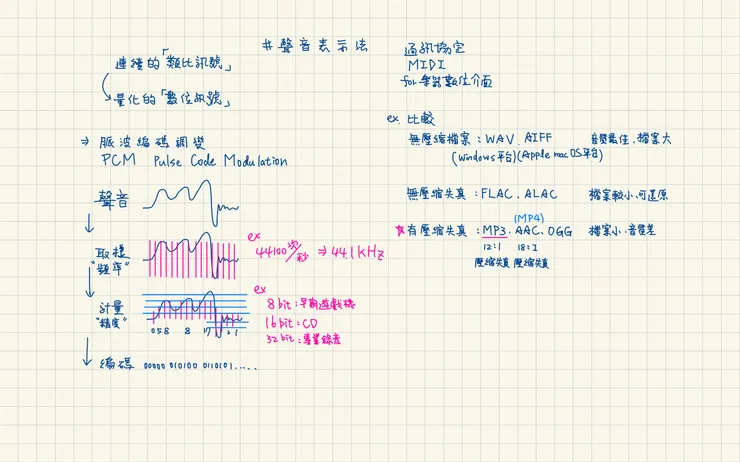 #聲音表示法
連續的「類比訊號」
量化的「數位訊號」
⇒ 脈波編碼調變
PCM Pulse Code Modulation
聲音
取樣
"頻率"
ex
44100次/秒 ⇒ 44.1kHz
計量
"精度"
058 8 17 2 1
ex
8bit:早期遊戲機
16bit:CD
32bit:專業錄音
編碼 00000 010100 0110101.....
通訊協定
MIDI
for 樂器數位介面
ex. 比較
無壓縮檔案:WAV、AIFF 音質最佳,檔案大
(Windows平台)(Apple mac OS平台)
無壓縮失真:FLAC、ALAC 檔案較小,可還原
(MP4)
有壓縮失真:MP3、AAC、OGG 檔案小、音質差
12:1 18:1
壓縮失真 壓縮失真